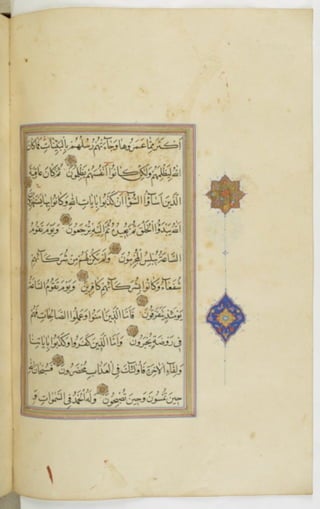 أَكْثَرَ مِمَّا عَمَرُوهَا وَجَاءَتْهُمْ رُسُلُهُمْ بِالْبَيِّنَاتِ فَمَا كَانَ
اللهُ لِيَظْلِمَهُمْ وَلَكِنْ كَانُوا أَنْفُسَهُمْ يَظْلِمُونَ ثُمَّ كَانَ عَاقِبَةَ
الَّذِينَ أَسَاؤُا السُّوأَى أَنْ كَذَّبُوا بِآيَاتِ اللهِ وَكَانُوا بِهَا يَسْتَهْزِؤُنَ
اللهُ يَبْدَؤُا الْخَلْقَ ثُمَّ يُعِيدُهُ ثُمَّ إِلَيْهِ تُرْجَعُونَ وَيَوْمَ تَقُومُ
السَّاعَةُ يُبْلِسُ الْمُجْرِمُونَ وَلَمْ يَكُنْ لَهُمْ مِنْ شُرَكَائِهِمْ
شُفَعَاءُ وَكَانُوا بِشُرَكَائِهِمْ كَافِرِينَ وَيَوْمَ تَقُومُ السَّاعَةُ
يَوْمَئِذٍ يَتَفَرَّقُونَ فَأَمَّا الَّذِينَ آمَنُوا وَعَمِلُوا الصَّالِحَاتِ فَهُمْ
فِي رَوْضَةٍ يُحْبَرُونَ وَأَمَّا الَّذِينَ كَفَرُوا وَكَذَّبُوا بِآيَاتِنَا
وَلِقَاءِ الْآخِرَةِ فَأُولَئِكَ فِي الْعَذَابِ مُحْضَرُونَ فَسُبْحَانَ اللهِ
حِينَ تُمْسُونَ وَحِينَ تُصْبِحُونَ وَلَهُ الْحَمْدُ فِي السَّمَوَاتِ وَ